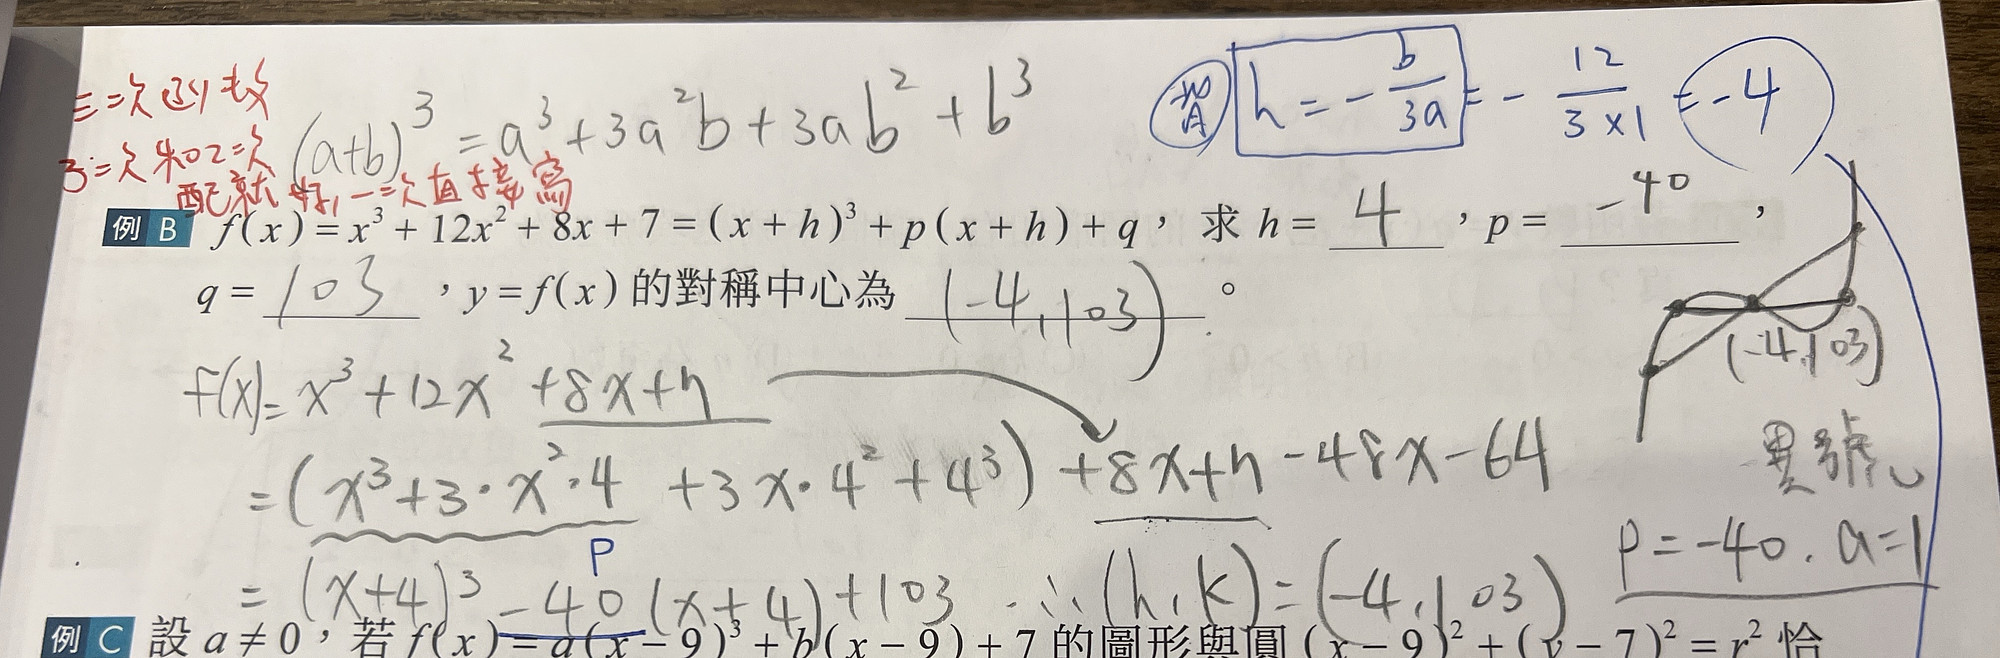 三次函數
3次和2次
配就好，一次直接寫
(a+b)³ = a³ + 3a²b + 3ab² + b³
背 h = - b/3a = - 12/3×1 = -4
例 B f(x) = x³ + 12x² + 8x + 7 = (x + h)³ + p(x + h) + q，求 h = 4，p = -40，
q = 103，y = f(x) 的對稱中心為 (-4, 103)。
f(x) = x³ + 12x² + 8x + 7
= (x³ + 3·x²·4 + 3x·4² + 4³) + 8x + 7 - 48x - 64
P
= (x+4)³ - 40(x+4) + 103 ∴ (h, k) = (-4, 103)
(-4, 103)
異號
p = -40, a = 1
例 C 設 a ≠ 0，若 f(x) = a(x - 9)³ + b(x - 9) + 7 的圖形與圓 (x - 9)² + (y - 7)² = r² 恰